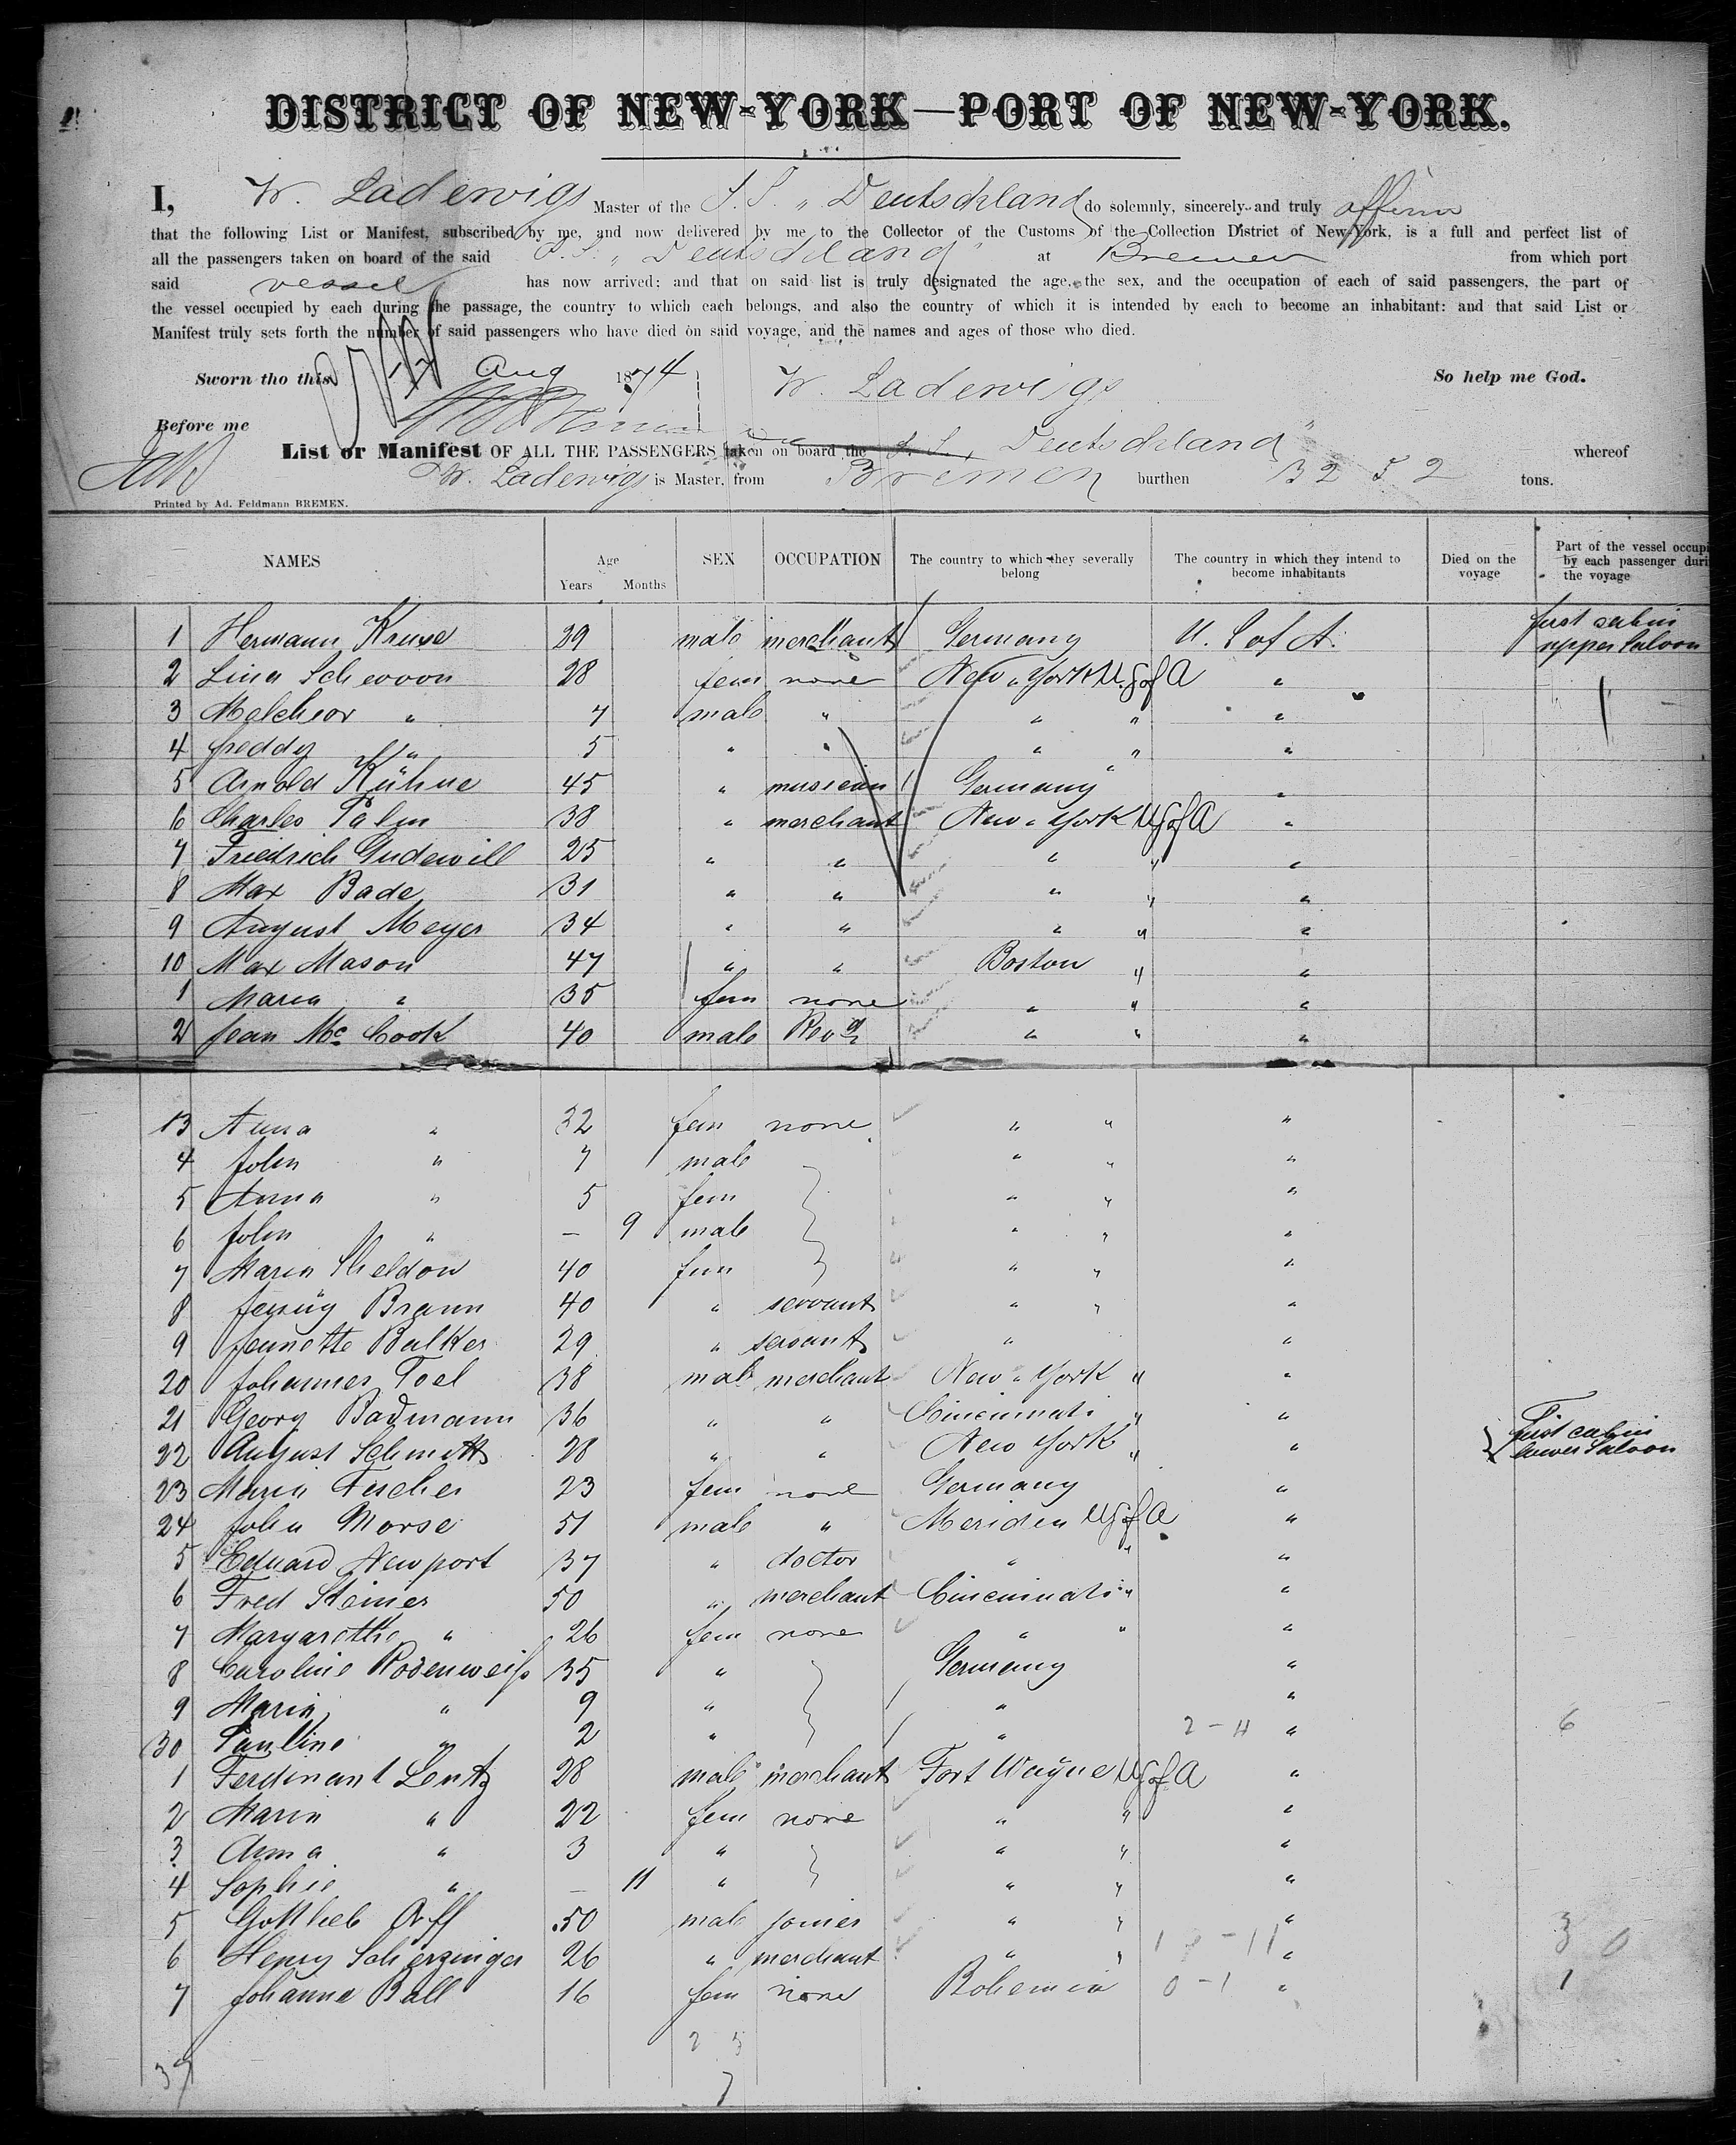 DISTRICT OF NEW-YORK—PORT OF NEW-YORK.
I, W. Ladewigs Master of the S.S. „ Deutschland do solemnly, sincerely and truly affirm
that the following List or Manifest, subscribed by me, and now delivered by me to the Collector of the Customs of the Collection District of New-York, is a full and perfect list of
all the passengers taken on board of the said S.S. „ Deutschland" at Bremen from which port
said vessel has now arrived: and that on said list is truly designated the age, the sex, and the occupation of each of said passengers, the part of
the vessel occupied by each during the passage, the country to which each belongs, and also the country of which it is intended by each to become an inhabitant: and that said List or
Manifest truly sets forth the number of said passengers who have died on said voyage, and the names and ages of those who died.
Sworn tho this 17 Aug 1874 W. Ladewigs So help me God.
Before me
List or Manifest OF ALL THE PASSENGERS taken on board the S.S. „ Deutschland" whereof
W. Ladewigs is Master, from Bremen burthen 3252 tons.
Printed by Ad. Feldmann BREMEN.
NAMES Age Years Months SEX OCCUPATION The country to which they severally belong The country in which they intend to become inhabitants Died on the voyage Part of the vessel occupi by each passenger duri the voyage
1 Hermann Kruse 29 male merchant Germany U. S of A. first cabin upper Saloon
2 Lina 28 fem none New-York U.S of A "
3 Melchior " 7 male " " " "
4 Freddy " 5 " " " " "
5 Arnold Kühne 45 " musician Germany "
6 Charles Palm 38 " merchant New-York U S of A "
7 Friedrich Gudewill 25 " " " " "
8 Max Bade 31 " " " " "
9 August Meyer 34 " " " " "
10 Max Mason 47 " " Boston " "
1 Maria " 35 fem none " " "
2 Jean Mc Cook 40 male Revd " " "
13 Anna " 32 fem none " " "
4 John " 7 male " " "
5 Anna " 5 fem " " "
6 John " — 9 male " " "
7 Maria Sheldon 40 fem " " "
8 Braun 40 " servant " " "
9 Jeanette Balker 29 " servant " "
20 Johannes Toel 38 male merchant New-York " "
21 Georg Badmann 36 " " Cincinnati " "
22 August Schmitt 28 " " New York " " First cabin lower Saloon
23 Maria Fischer 23 fem none Germany "
24 John Morse 51 male " Meriden U S of A "
5 Eduard Newport 37 " doctor " " "
6 Fred Steiner 50 " merchant Cincinnati " "
7 Margarethe " 26 fem none " " "
8 Caroline Rosenweiß 35 " Germany "
9 Maria " 9 " " "
30 Pauline " 2 " " 2 - 4 " 6
1 Ferdinant Lentz 28 male merchant Fort Wayne U S of A "
2 Maria " 22 fem none " " "
3 Anna " 3 " " " "
4 Sophie " — 11 " " " "
5 Gottlieb Orff 50 male joiner " " " 3 0
6 Henry Scherzinger 26 " merchant " " "
7 Johanna Ball 16 fem none Bohemia 0 - 1 " 1
2 3
37 7